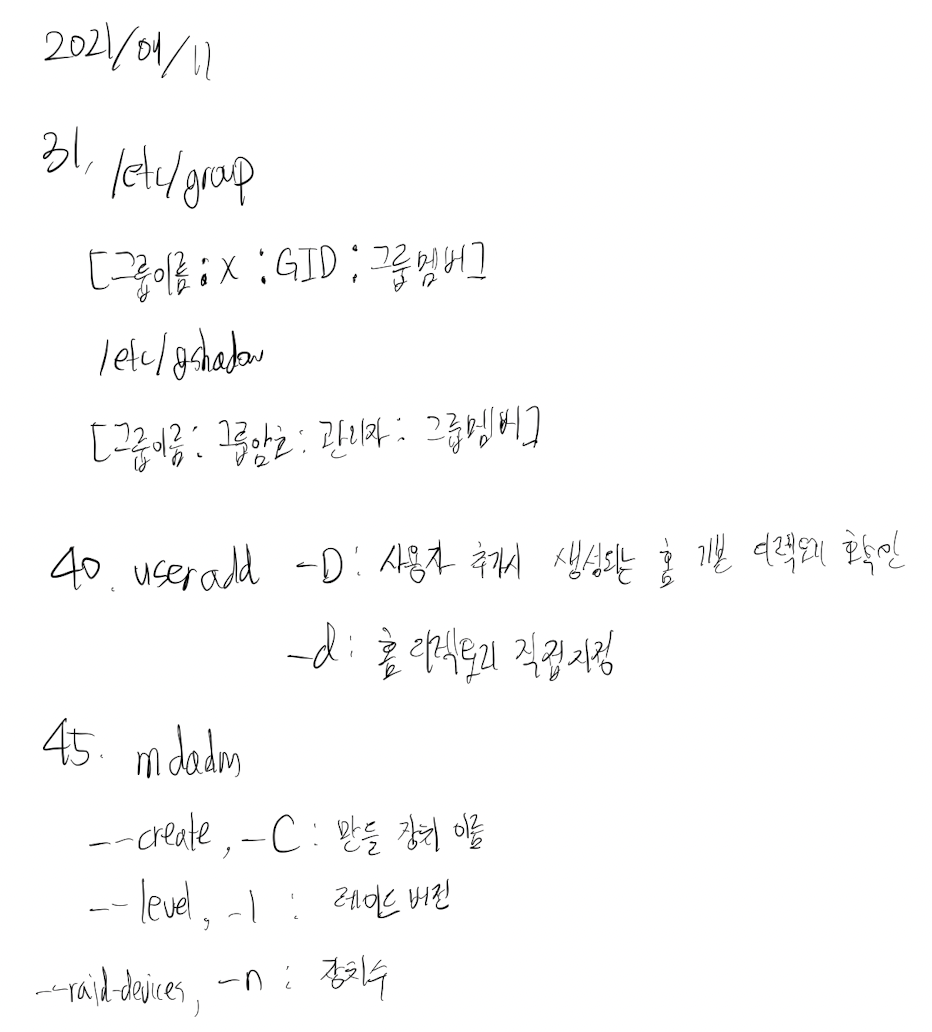 2021/04/11
31, /etc/group
[그룹이름:x:GID:그룹멤버]
/etc/gshadow
[그룹이름:그룹암호:관리자:그룹멤버]
40. useradd -D: 사용자 추가시 생성되는 홈 기본 디렉토리 확인
-d: 홈 디렉토리 직접지정
45. mdadm
--create, -C: 만들 장치 이름
--level, -l : 레이드 버전
--raid-devices, -n : 장치수